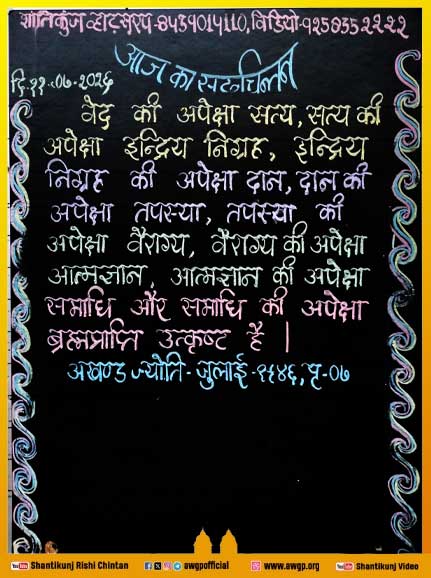 शान्तिकुंज व्हाट्सएप-8439014110, विडियो-9258352222
आज का सद्चिन्तन
दि. 11-07-2026
वेद की अपेक्षा सत्य, सत्य की
अपेक्षा इन्द्रिय निग्रह, इन्द्रिय
निग्रह की अपेक्षा दान, दान की
अपेक्षा तपस्या, तपस्या की
अपेक्षा वैराग्य, वैराग्य की अपेक्षा
आत्मज्ञान, आत्मज्ञान की अपेक्षा
समाधि और समाधि की अपेक्षा
ब्रह्मप्राप्ति उत्कृष्ट है |
अखण्ड ज्योति- जुलाई-१९४६, पृ-०७
Shantikunj Rishi Chintan awgpofficial www.awgp.org Shantikunj Video